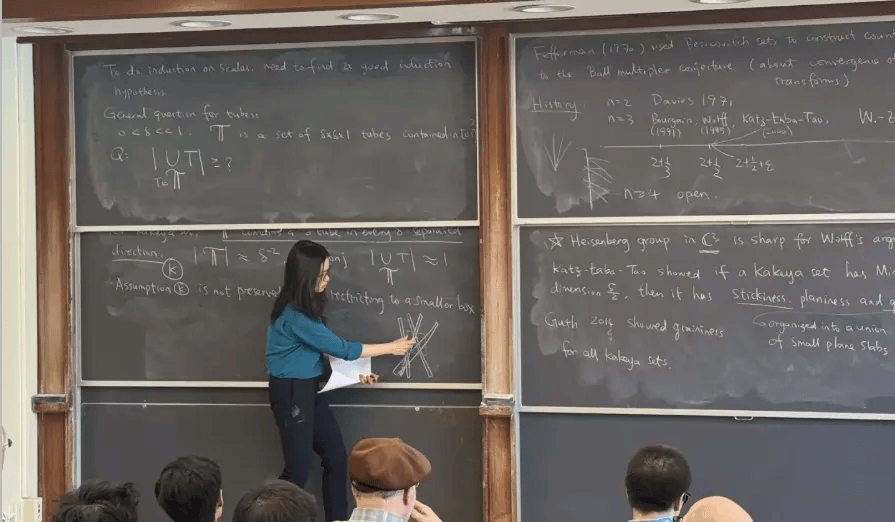 To do induction on scales, need to find a good induction
hypothesis.
General question for tubes:
0 < δ << 1. 𝕋 is a set of δxδx1 tubes contained in
Q: | ∪ T | ≥ ?
T∈𝕋
𝕋 contains a δ tube in every δ-separated
direction. |𝕋| ≈ δ⁻² | ∪ T | ≈ 1
𝕋
(k)
Assumption (k) is not preserved restricting to a smaller box
Fefferman (1970) used Besicovitch sets to construct
to the Ball multiplier conjecture (about convergence of
transforms)
History: n=2 Davies 1971
n=3 Bourgain, Wolff, Katz-Łaba-Tao, W.-Z
(1991) (1995) (2000)
2+1/3 2+1/2 2+1/2+ε
n≥4 open.
☆ Heisenberg group in ℂ³ is sharp for Wolff's
Katz-Łaba-Tao showed if a Kakeya set has
dimension 5/2, then it has stickiness, planiness and
Guth 2014 showed graininess
for all Kakeya sets.
organized into a union
of small plane slabs